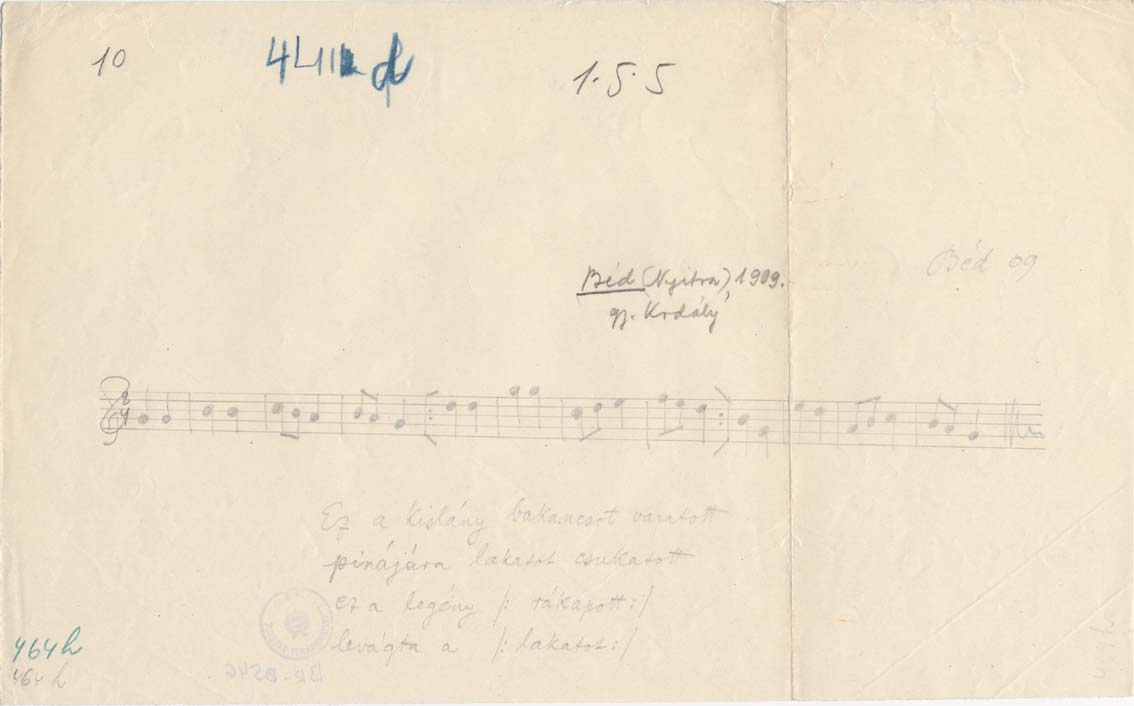 10
1·5·5
Béd 09
Béd (Nyitra), 1909.
gy. Kodály
2
4
Ez a kislány bakancsot varatott
pinájára lakatot csukatott
ez a legény /: rákapott :/
levágta a /: lakatot :/
464h
464h